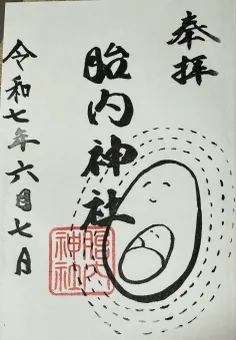 奉拝
胎内神社
胎内
神社
令和七年六月七日